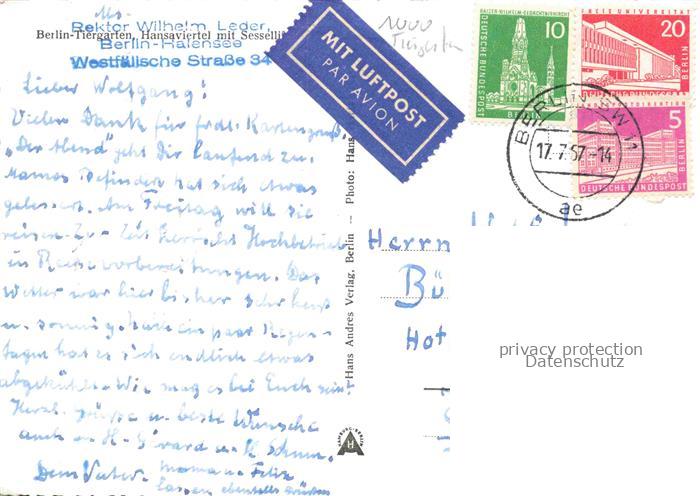 Abs.
Rektor Wilhelm Leder,
Berlin-Tiergarten, Hansaviertel mit Sessellif
Berlin-Halensee
Westfälische Straße 34
1000
Tiergarten
MIT LUFTPOST
PAR AVION
KAISER-WILHELM-GEDÄCHTNISKIRCHE
10
DEUTSCHE BUNDESPOST
BERLIN
FREIE UNIVERSITÄT
20
BERLIN
5
BERLIN
DEUTSCHE BUNDESPOST
BERLIN SW 11
17.7.67-14
ae
Lieber Wolfgang!
Vielen Dank für frdl. Kartengruß.
"Der Abend" geht Dir laufend zu.
Mamas Befinden hat sich etwas
gebessert. Am Freitag will sie
reisen. Zur Zeit herrscht Hochbetrieb
in Reisevorbereitungen. Das
Wetter war hier bisher sehr heiß
u. sonnig. ein paar Regen-
tagen hat es sich endlich etwas
abgekühlt. Wie mag es bei Euch sein?
Herzl. Grüße u. beste Wünsche
auch an H. u. H.
Dein Vater. Mama u. Felix
lassen ebenfalls grüßen
Hans Andres Verlag, Berlin – Photo: Hans
HAMBURG-BERLIN
H
Herrn
Bü
Hot
privacy protection
Datenschutz